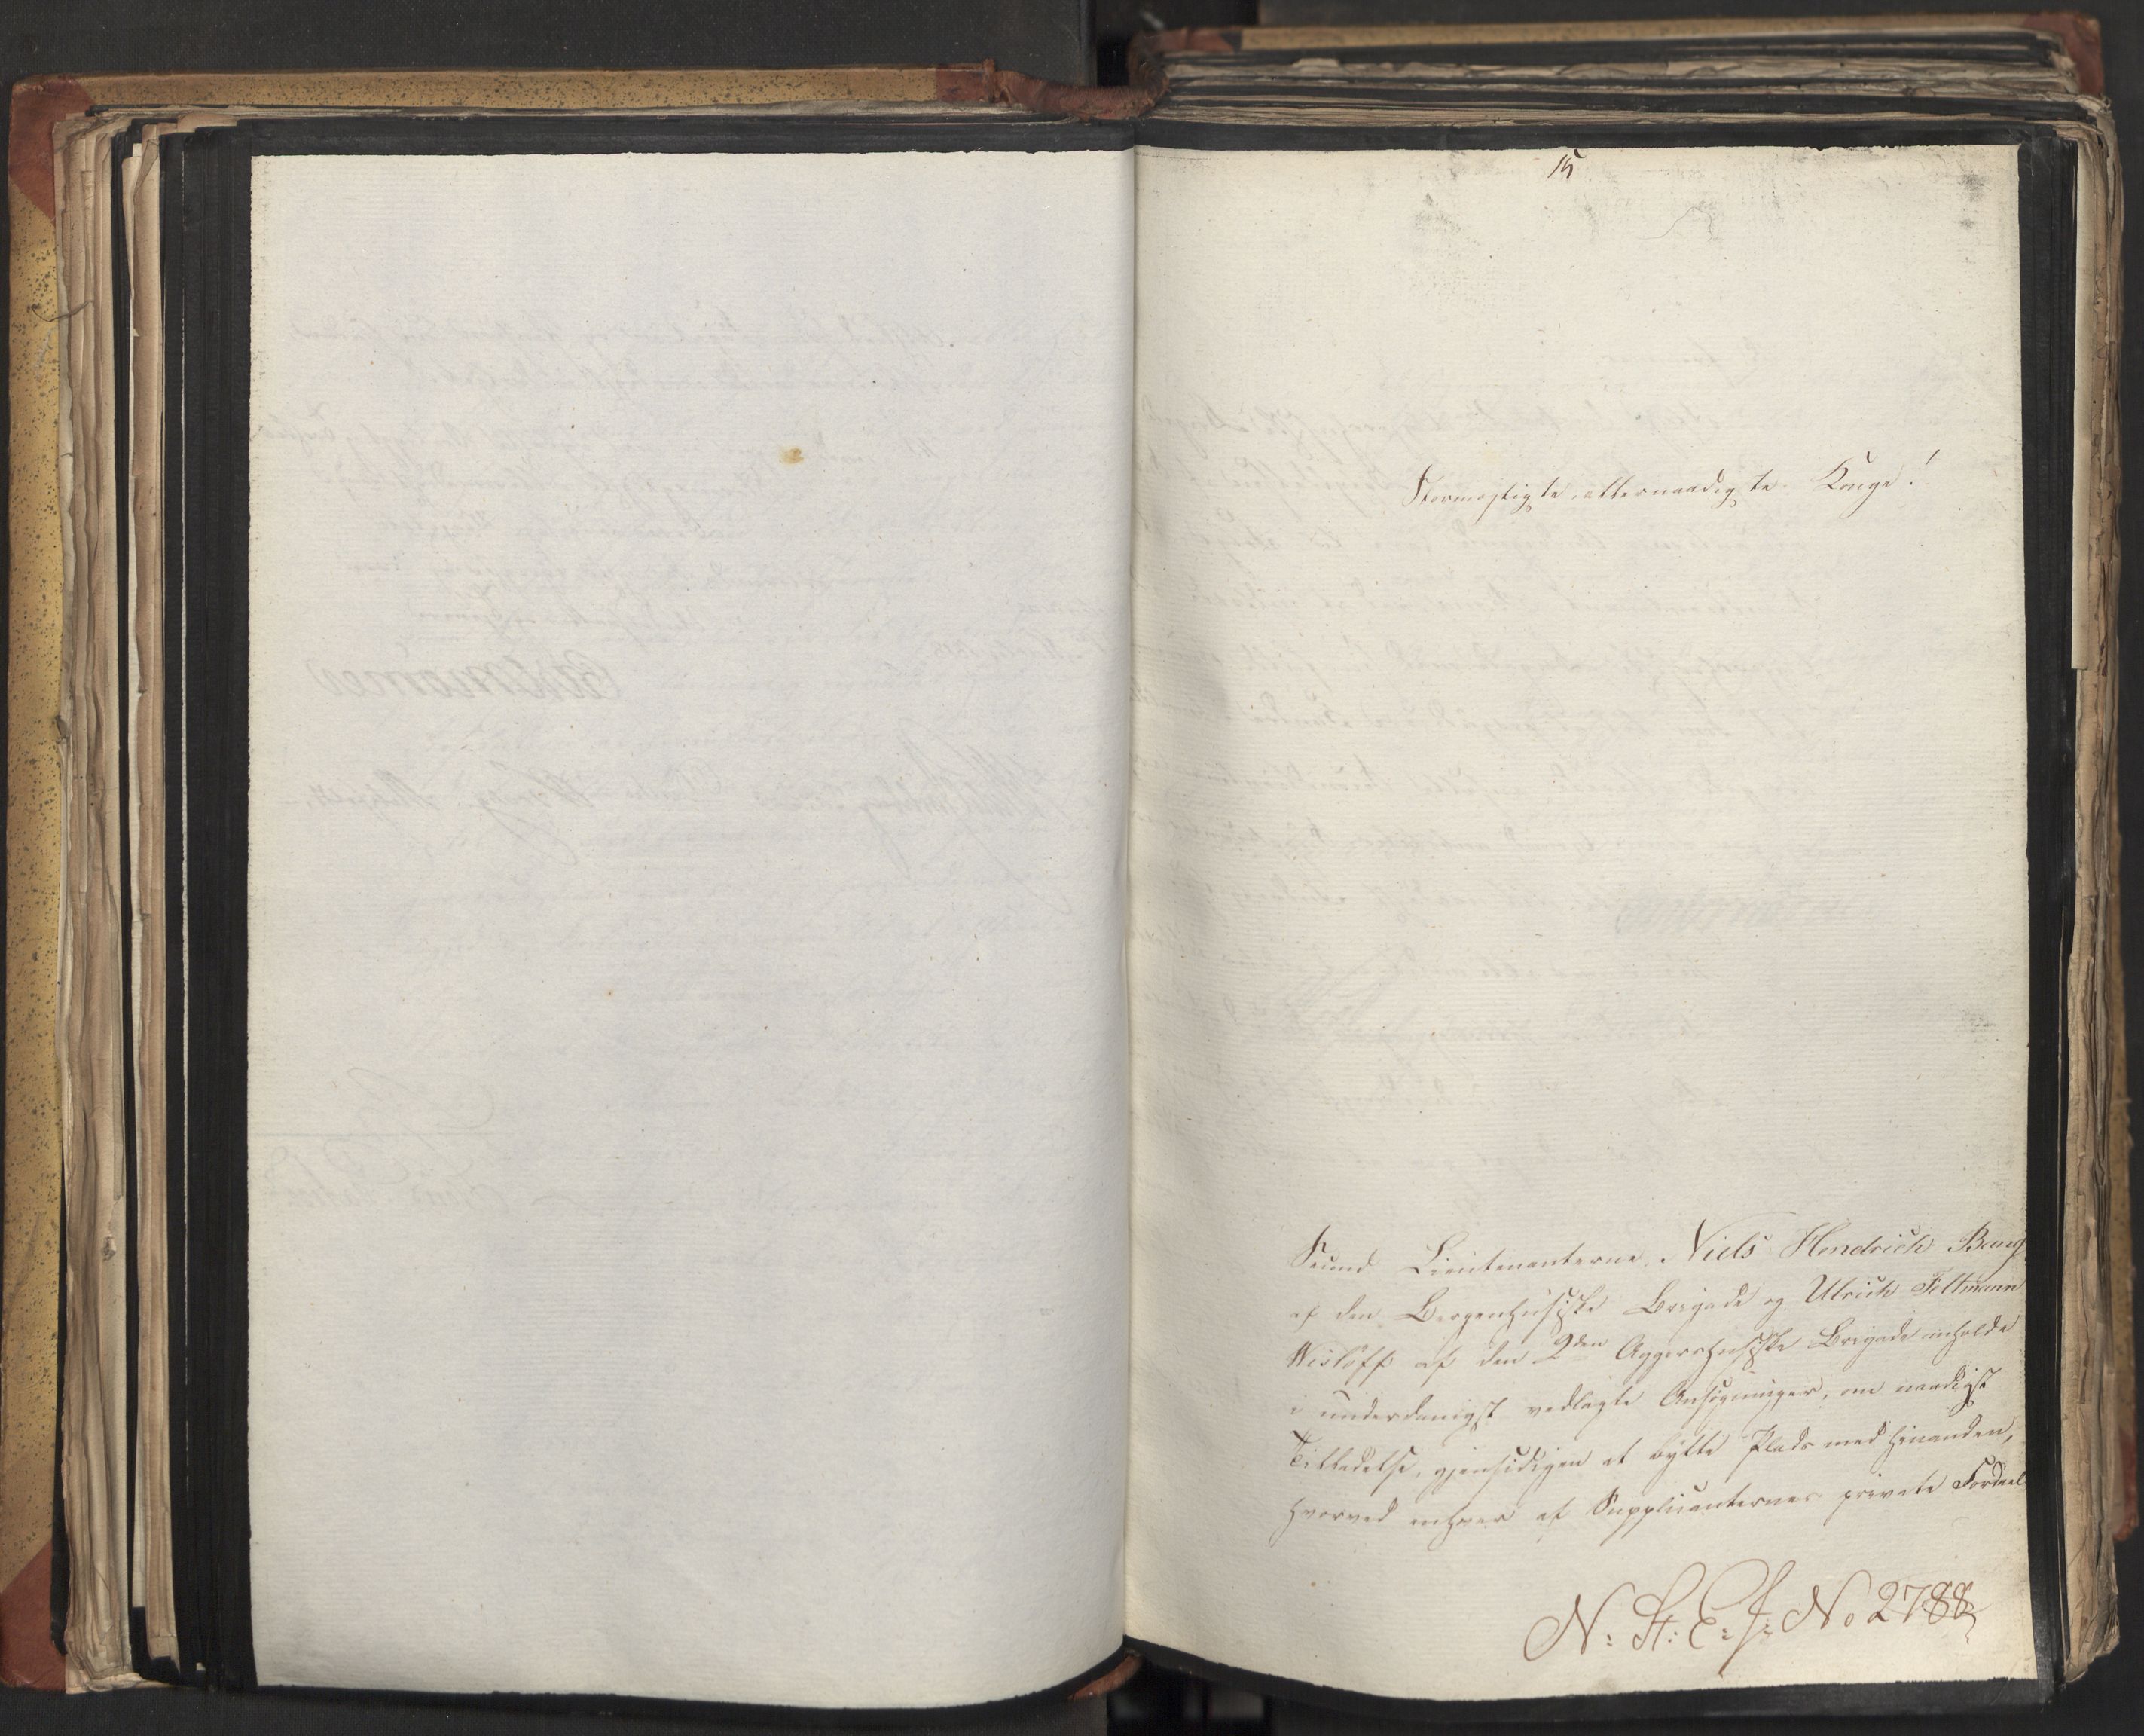 15
Stormægtigste, allernaadigste Konge!
Secund Lieutenanterne, Niels Hendrich Bang
af den Bergenhusiske Brigade og Ulrich Feltmann
Wisløff af den 2den Aggershusiske Brigade anholde
i underdanigst vedlagte Ansøgninger, om naadigst
Tilladelse, gjensidigen at bytte Plads med hinanden,
hvorved enhver af Supplicanternes private Fordeel
N: St: E: J: No 2788